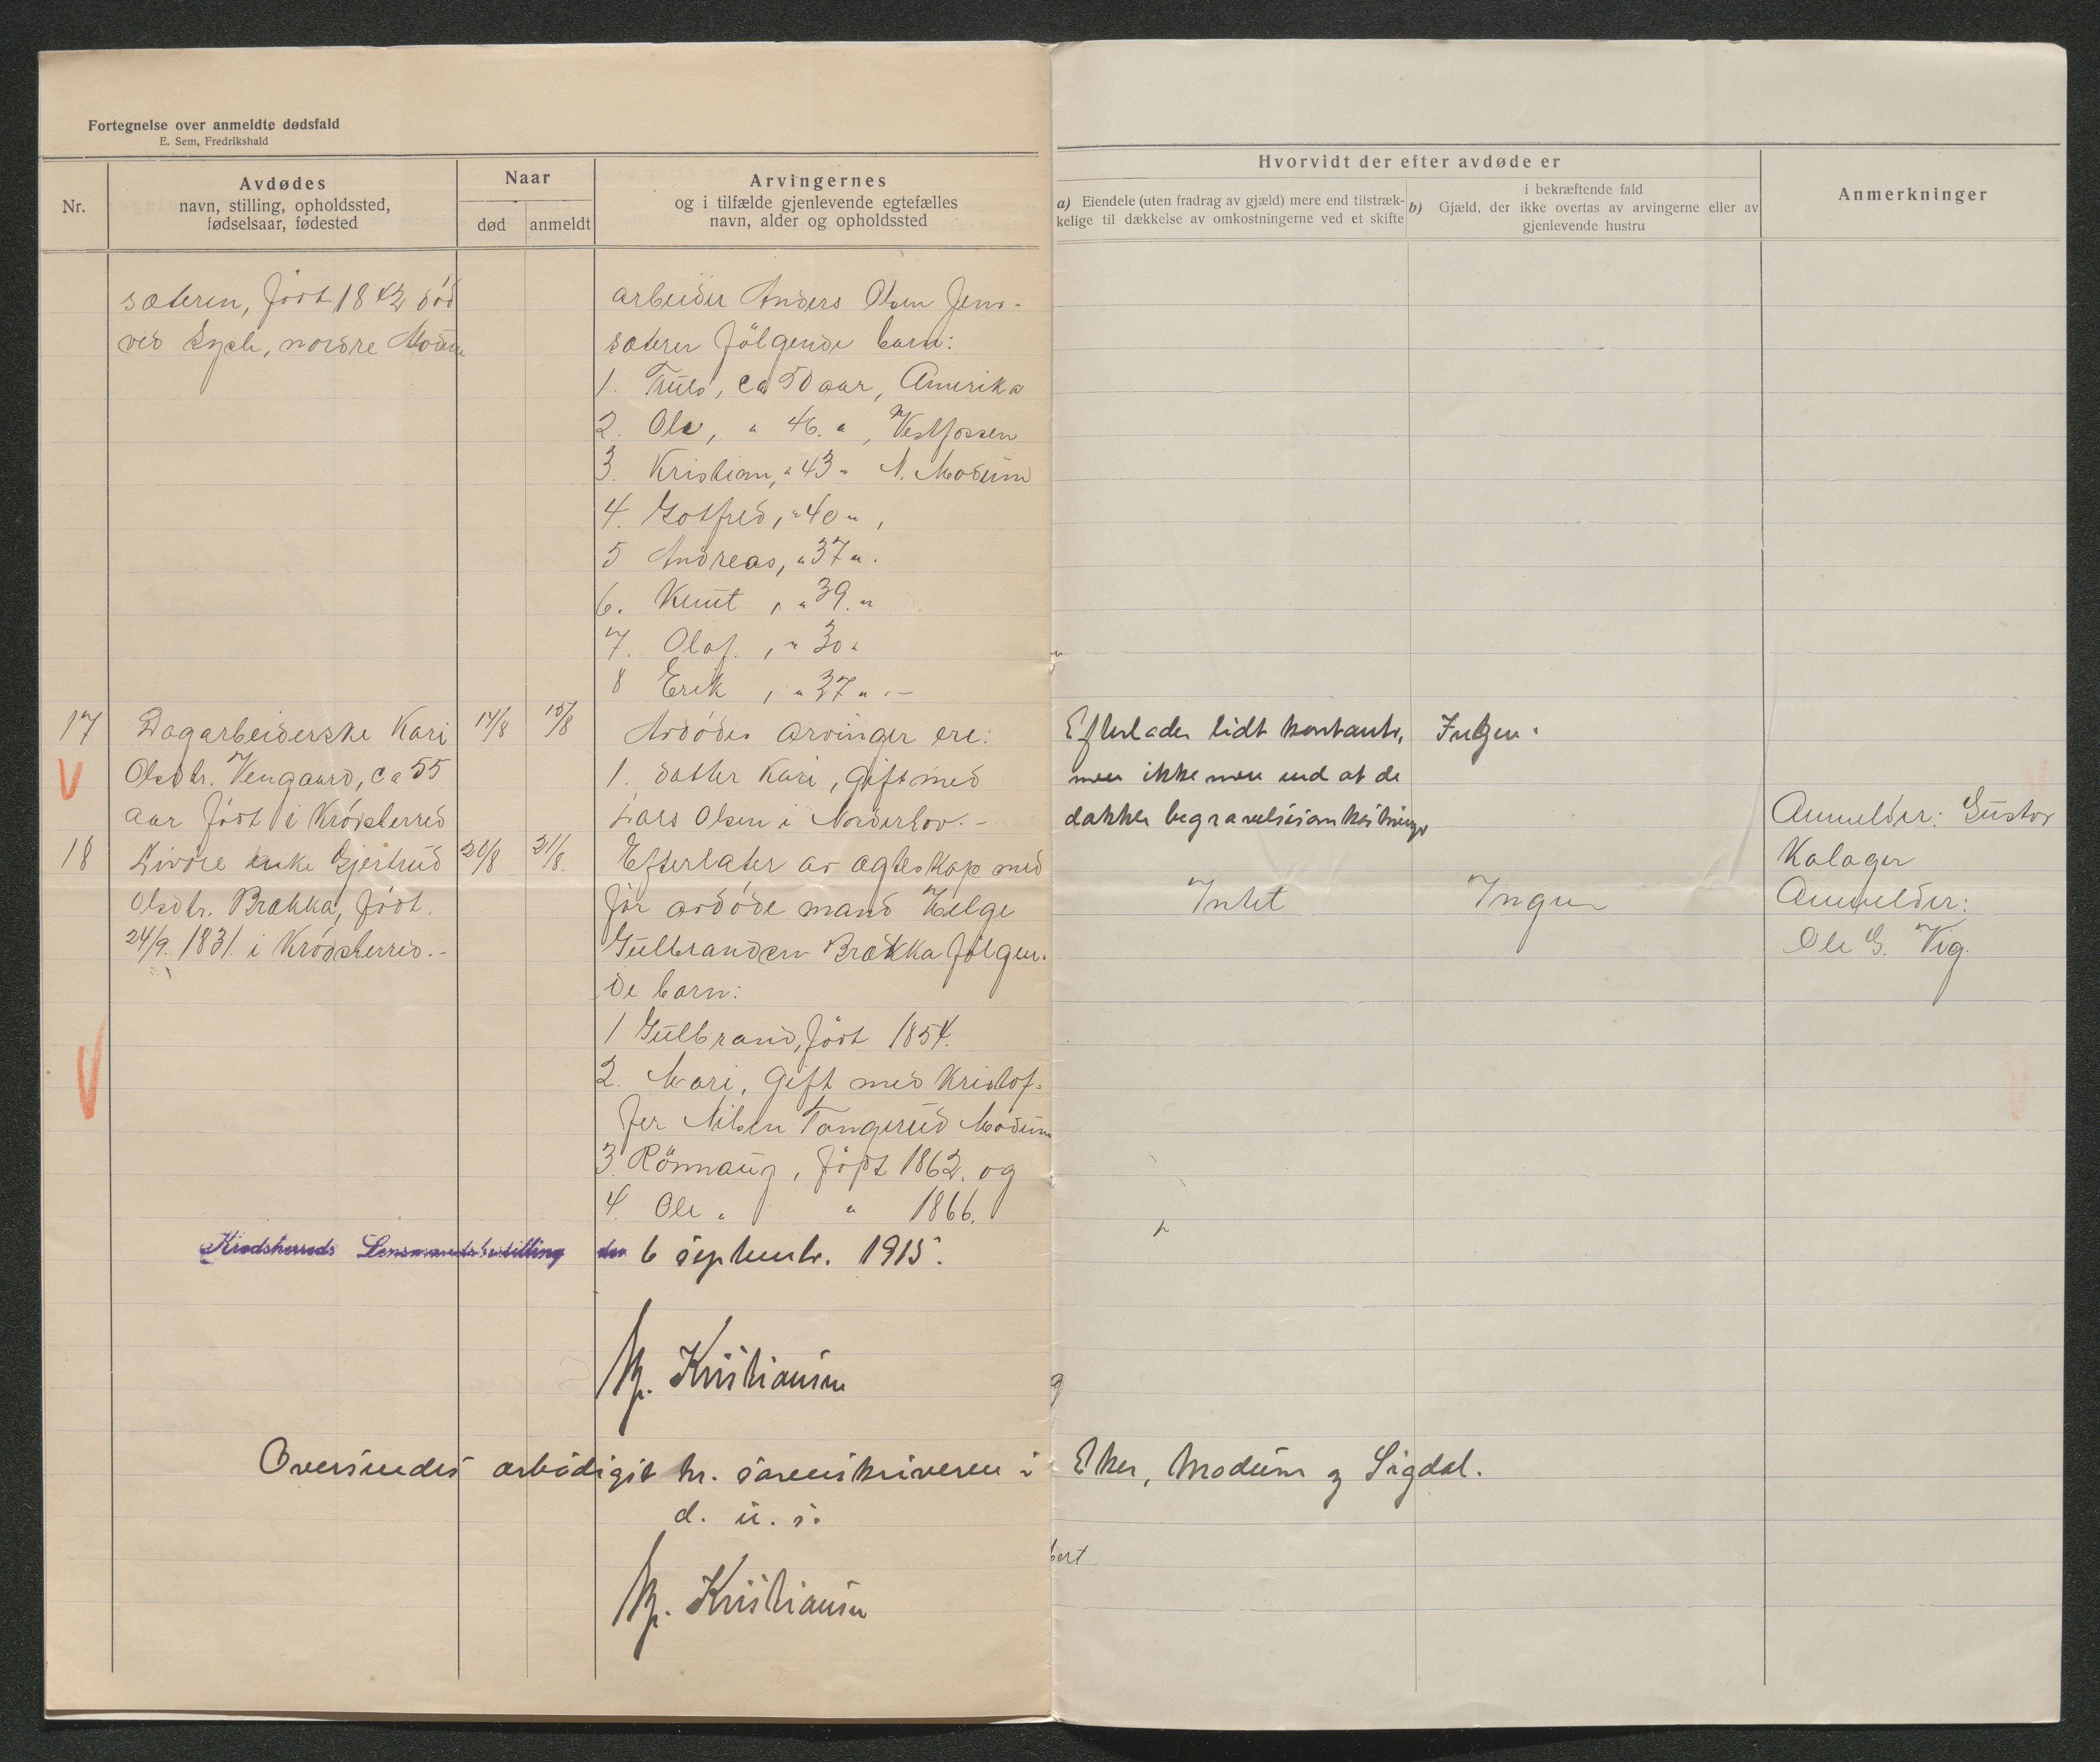 Fortegnelse over anmeldte dødsfald
E. Sem, Fredrikshald
Nr.
Avdødes
navn, stilling, opholdssted,
fødselsaar, fødested
Naar
død
anmeldt
Arvingernes
og i tilfælde gjenlevende egtefælles
navn, alder og opholdssted
Hvorvidt der efter avdøde er
a) Eiendele (uten fradrag av gjæld) mere end tilstræk-
kelige til dækkelse av omkostningerne ved et skifte
i bekræftende fald
b) Gjæld, der ikke overtas av arvingerne eller av
gjenlevende hustru
Anmerkninger
sæteren, født 1842 död
ved nordre Modum
arbeider Anders Olsen Jens-
sæteren følgende barn:
1. Truls, ca 50 aar, Amerika
2. Ole, " 46. ", Vestfossen
3. Kristian, " 43 " N. Modum
4. Gotfred, " 40 ",
5 Andreas, " 37 ".
6. Knut, " 39. "
7. Olaf. , " 30 "
8 Erik , " 37 " . -
17 Dagarbeiderske Kari
Olsdtr. Vengaard, ca 55
aar født i Krödsherred
14/8
15/8
Avdödes arvinger ere:
1. datter Kari, gift med
Lars Olsen i Norderhov. -
Efterlader lidt kontanter,
men ikke mere end at de
dækker begravelsesomkostninger
Ingen.
Anmelder: Gustav
Kalager
18 Livøre enke Gjertrud
Olsdtr. Brækka, født.
24/9. 1831. i Krödsherred. -
20/8
21/8.
Efterlater av ægteskap med
før avdöde mand Helge
Gulbrandsen Brækka følgen-
de barn:
1 Gulbrand, født 1854.
2. Mari, gift med Kristof-
fer Nilsen Tangerud Modum
3. Rönnaug, født 1862. og
4. Ole " " 1866.
Intet
Ingen
Anmelder:
Ole G. Vig.
Krødsherreds Lensmandsbestilling den 6 septembr. 1915.
Kristiansen
Oversendes ærbødigst hr. sorenskriveren i Eker, Modum og Sigdal.
d. u. s.
Kristiansen